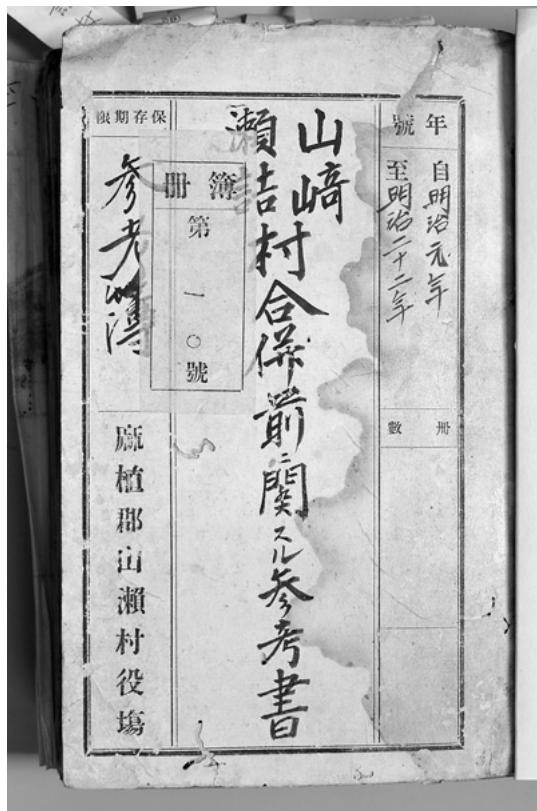 年號
自明治元年
至明治二十二年
冊數
山﨑
瀨詰村合併前ニ関スル参考書
保存期限
簿冊
第一〇號
麻植郡山瀨村役塲